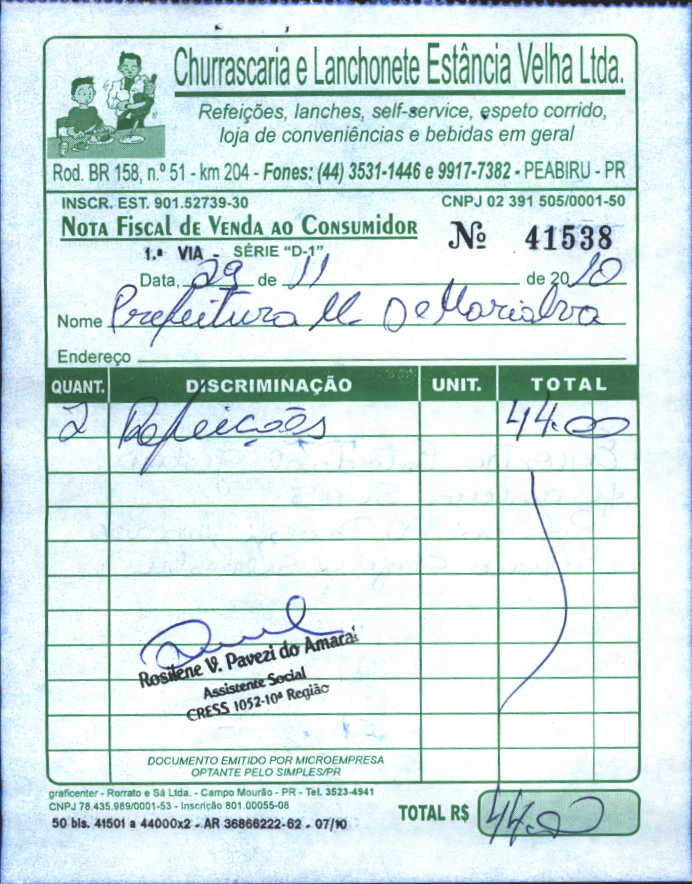 Churrascaria e Lanchonete Estância Velha Ltda.
Refeições, lanches, self-service, espeto corrido,
loja de conveniências e bebidas em geral
Rod. BR 158, n.º 51 - km 204 - Fones: (44) 3531-1446 e 9917-7382 - PEABIRU - PR
INSCR. EST. 901.52739-30 CNPJ 02 391 505/0001-50
NOTA FISCAL DE VENDA AO CONSUMIDOR Nº 41538
1.ª VIA - SÉRIE "D-1"
Data, 29 de 11 de 2010
Nome Prefeitura M. De Marialva
Endereço
QUANT. DISCRIMINAÇÃO UNIT. TOTAL
2 Refeições 44.00
Rosilene V. Pavezi do Amaral
Assistente Social
CRESS 1052-10ª Região
DOCUMENTO EMITIDO POR MICROEMPRESA
OPTANTE PELO SIMPLES/PR
graficenter - Rorrato e Sá Ltda. - Campo Mourão - PR - Tel. 3523-4941
CNPJ 78.435.989/0001-53 - Inscrição 801.00055-06
50 bls. 41501 a 44000x2 - AR 36866222-62 - 07/10
TOTAL R$ 44.00